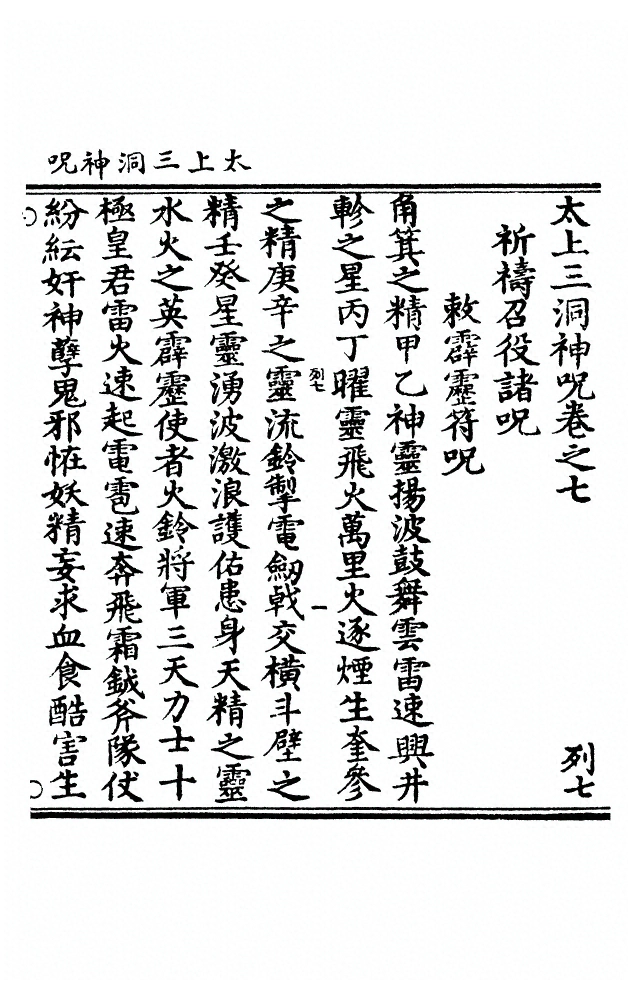 太上三洞神呪
太上三洞神呪卷之七
列七
祈禱召役諸呪
敕霹靂符呪
角箕之精甲乙神靈揚波鼓舞雲雷速興井
軫之星丙丁曜靈飛火萬里火逐煙生奎參
之精庚辛之靈流鈴掣電劒戟交橫斗壁之
列七
一
精壬癸星靈湧波激浪護佑患身天精之靈
水火之英霹靂使者火鈴將軍三天力士十
極皇君雷火速起電雹速奔飛霜鉞斧隊仗
紛紜奸神孽鬼邪恠妖精妄求血食酷害生